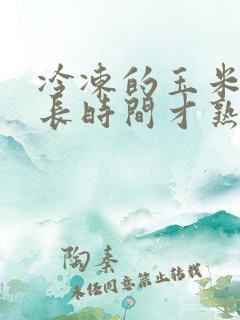 冷凍的玉米
長時間才熟
陶秦
未經同意禁止轉載